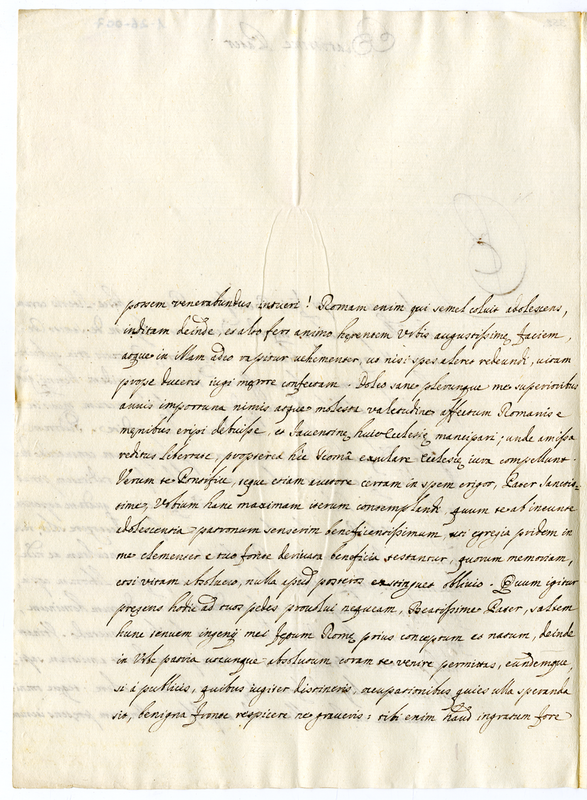 possem venerabundus intueri! Romam enim qui semel coluit adolescens,
inditam deinde, et alto fert animo hęrentem Urbis augustissimę faciem,
atque in illam adeo rapitur vehementer, ut nisi spes aleret redeundi, vitam
propè duceret iugi męrore confectam. Doleo sanè plerunque me superioribus
annis importuna nimis atque molesta valetudine affectum Romanis e
męnibus eripi debuisse, et Faventinę huic Ecclesię mancipari; unde amissa
reditus libertate, propterea hîc Româ exulare Ecclesię iura compellunt.
Verum te Pontifice, teque etiam auctore certam in spem erigor, Pater Sanctis-
sime, Urbem hanc maximam iterum contemplandi, quum te ab ineunte
adolescentia patronum senserim beneficentissimum, uti egregia pridem in
me clementer e tuo fonte derivata beneficia testantur, quorum memoriam,
etsi vitam absolvero, nulla apud posteros extinguet oblivio. Quum igitur
pręsens hodie ad tuos pedes provolvi nequeam, Beatissime Pater, saltem
hunc tenuem ingenij mei fętum Romę prius conceptum et natum, deinde
in Urbe patria utcunque absolutum coram te venire permittas, eundemque,
si à publicis, quibus iugiter distineris, occupationibus quies ulla speranda
sit, benigna fronte respicere ne graveris: tibi enim haud ingratum fore